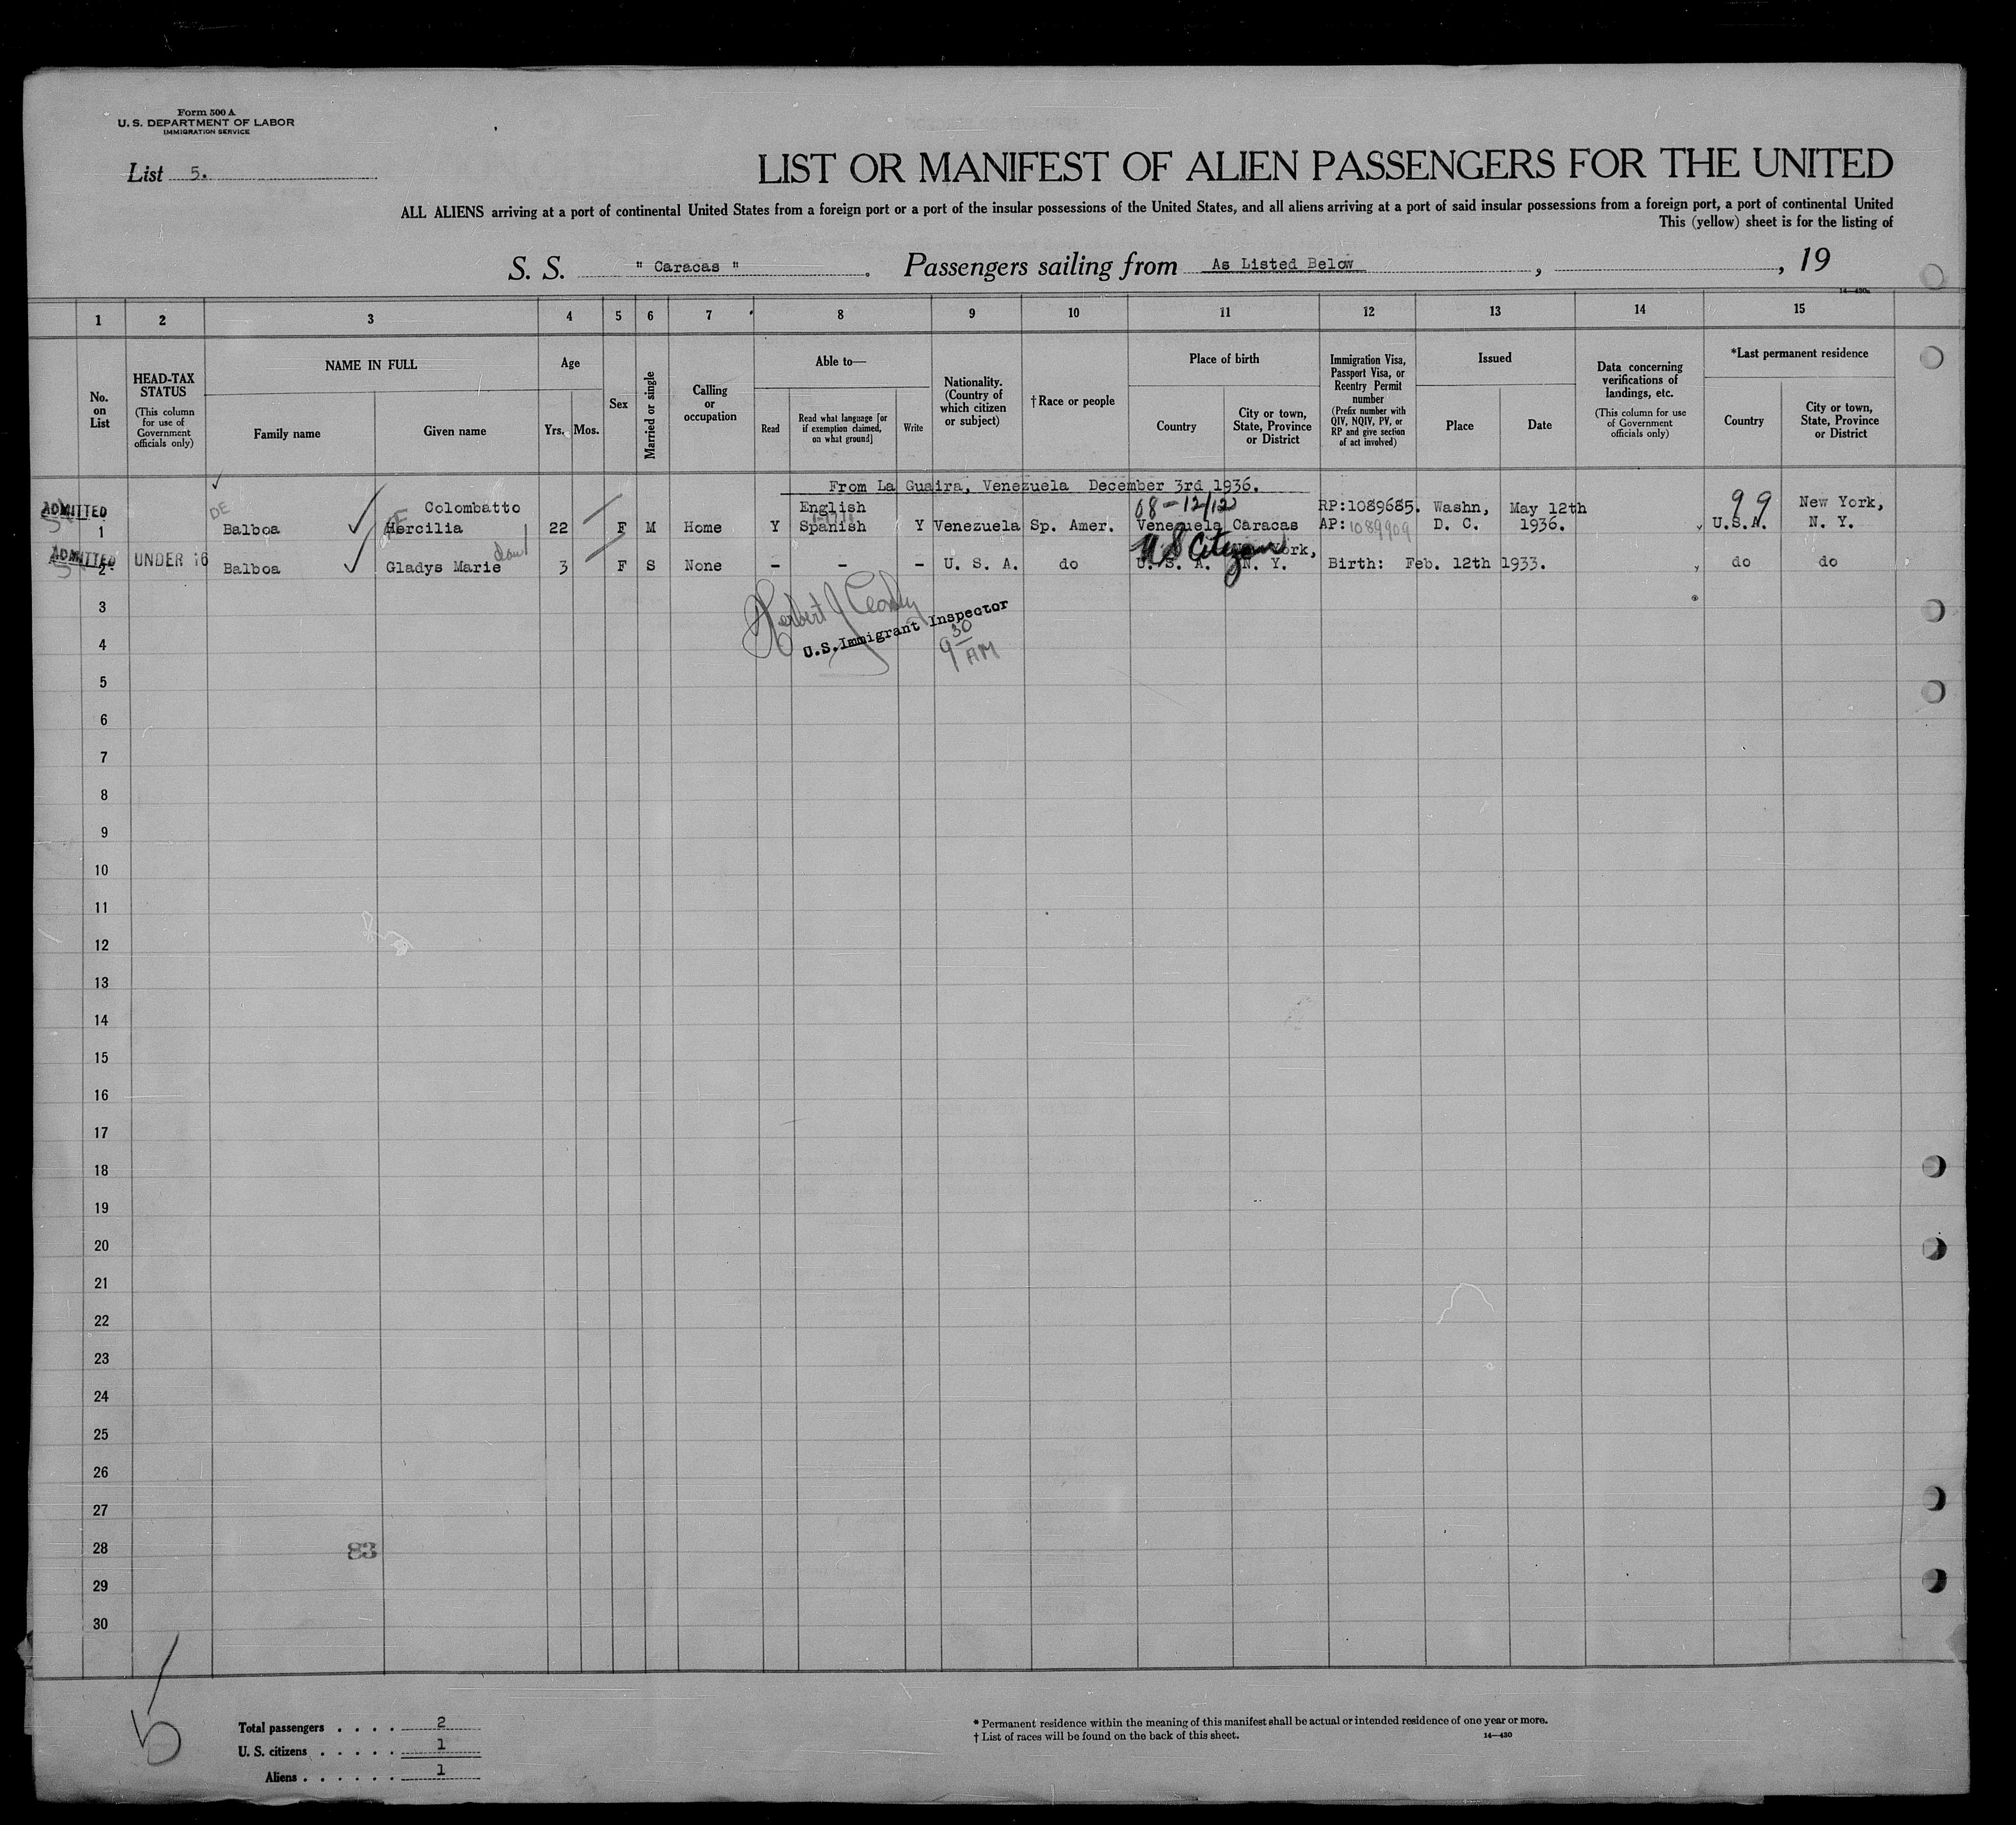 Form 500 A
U. S. DEPARTMENT OF LABOR
IMMIGRATION SERVICE
List 5.
LIST OR MANIFEST OF ALIEN PASSENGERS FOR THE UNITED
ALL ALIENS arriving at a port of continental United States from a foreign port or a port of the insular possessions of the United States, and all aliens arriving at a port of said insular possessions from a foreign port, a port of continental United
This (yellow) sheet is for the listing of
S. S. " Caracas ". Passengers sailing from As Listed Below, , 19
14—430a
1 2 3 4 5 6 7 8 9 10 11 12 13 14 15
No. on List
HEAD-TAX STATUS
(This column for use of Government officials only)
NAME IN FULL
Family name
Given name
Age
Yrs. Mos.
Sex
Married or single
Calling or occupation
Able to—
Read
Read what language [or if exemption claimed, on what ground]
Write
Nationality. (Country of which citizen or subject)
†Race or people
Place of birth
Country
City or town, State, Province or District
Immigration Visa, Passport Visa, or Reentry Permit number
(Prefix number with QIV, NQIV, PV, or RP and give section of act involved)
Issued
Place
Date
Data concerning verifications of landings, etc.
(This column for use of Government officials only)
*Last permanent residence
Country
City or town, State, Province or District
From La Guaira, Venezuela December 3rd 1936.
ADMITTED DE Colombatto English 08-12/12 RP:1089685. Washn, May 12th 99 New York,
1 Balboa Hercilia 22 F M Home Y Spanish Y Venezuela Sp. Amer. Venezuela Caracas AP:1089909 D. C. 1936. U.S.A. N. Y.
ADMITTED UNDER 16 dau US Citizen York,
2 Balboa Gladys Marie 3 F S None - - - U. S. A. do U. S. A. N. Y. Birth: Feb. 12th 1933. do do
3
U.S. Immigrant Inspector
4
9 30 AM
5
6
7
8
9
10
11
12
13
14
15
16
17
18
19
20
21
22
23
24
25
26
27
28 83
29
30
5
Total passengers . . . . 2
U. S. citizens . . . . . 1
Aliens . . . . . . 1
* Permanent residence within the meaning of this manifest shall be actual or intended residence of one year or more.
† List of races will be found on the back of this sheet.
14—430